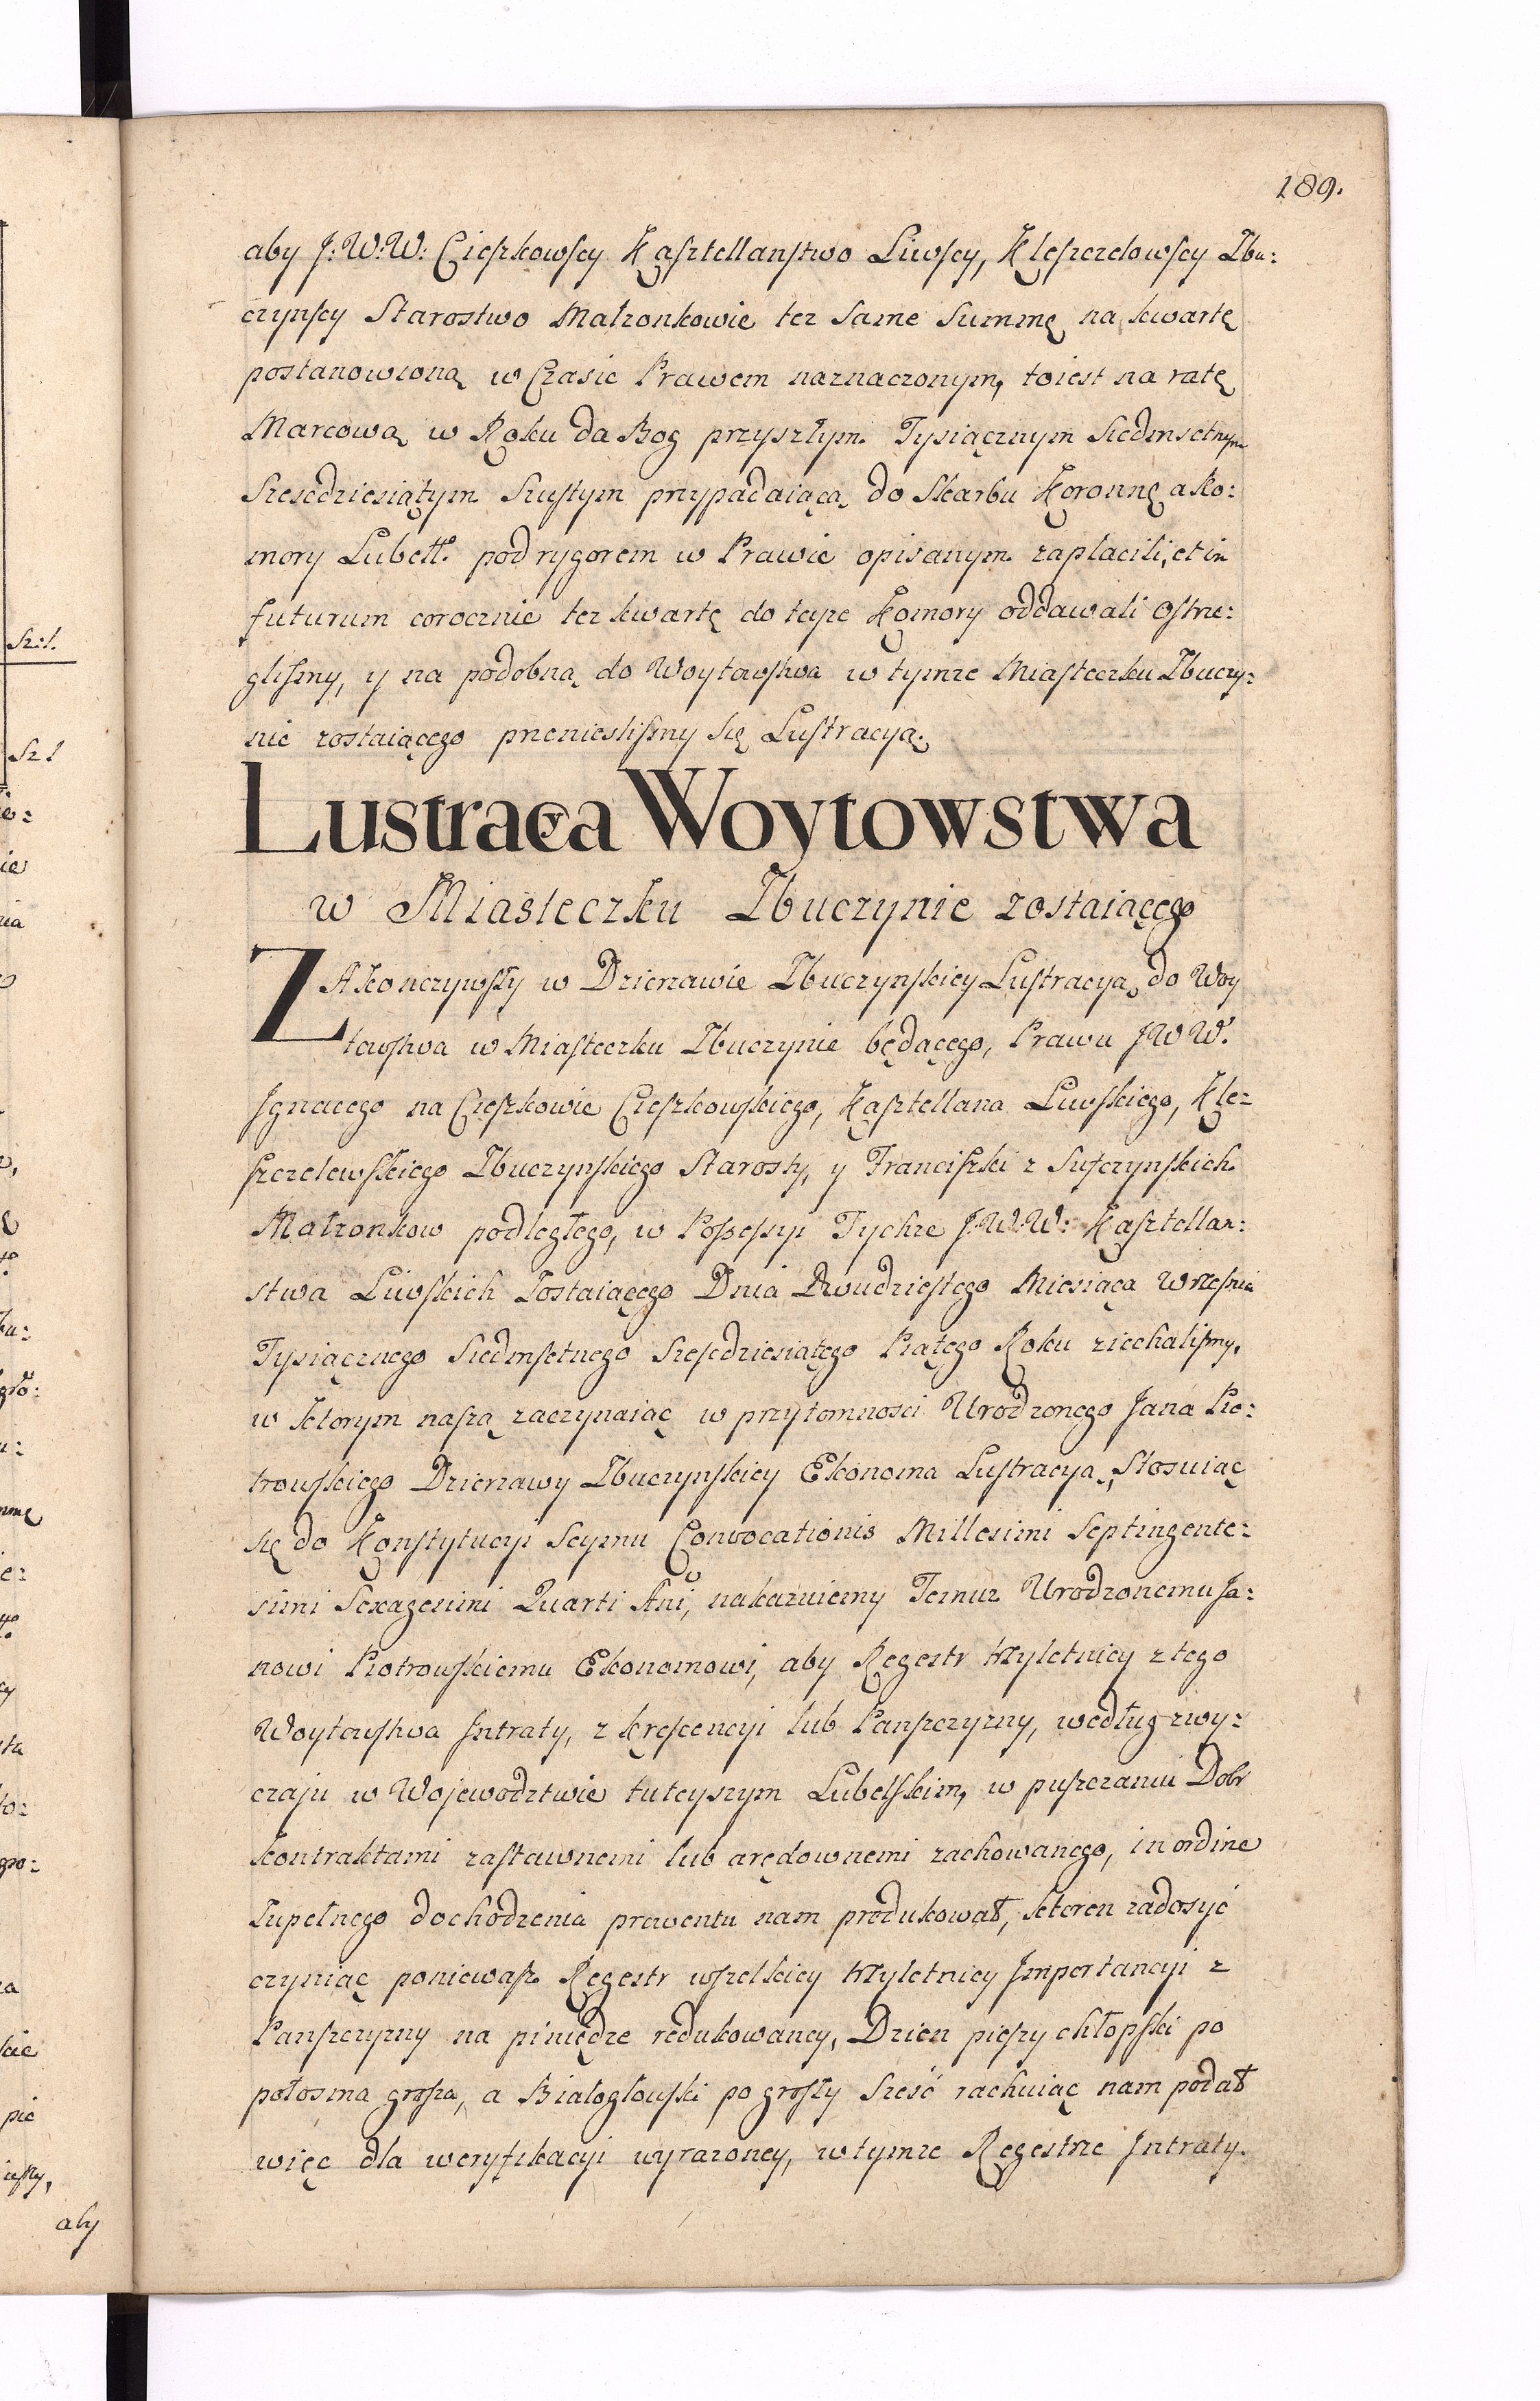 189.
aby J: W: W: Cieszkowscy Kasztellanstwo Liwscy, Kleszczelowscy Zbu:
czynscy Starostwo Małzonkowie tez same Summę na kwartę
postanowioną w Czasie Prawem naznaczonym, toiest na ratę
Marcową w Roku da Bog przyszłym Tysiącznym Siedmsetnym
Szescdziesiątym Szustym przypadaiącą do Skarbu Koronnę a Ko:
mory Lubell. pod rygorem w Prawie opisanym zapłacili, et in
futurum corocznie tez kwartę do teyze Komory oddawali ostrze:
glismy, y na podobną do Woytowstwa w tymze Miasteczku Zbuczy:
nie zostaiącego przenieslismy się Lustracyą.
Lustracya Woytowstwa
w Miasteczku Zbuczynie zostaiącego
ZAkonczywszy w Dzierzawie Zbuczynskiey Lustracyą, do Woy
towstwa w Miasteczku Zbuczynie będącego, Prawu J W W.
Jgnacego na Cieszkowie Cieszkowskiego, Kasztellana Liwskiego, Kle:
szczelewskiego Zbuczynskiego Starosty, y Franciszki z Suszczynskich
Małzonkow podległego, w Possessyi Tychze J: W: W: Kasztellan:
stwa Liwskich Zostaiącego Dnia Dwudziestego Miesiąca Wrzesnia
Tysiącznego Siedmsetnego Szescdziesiątego Piątego Roku ziechalismy,
w ktorym naszą zaczynaiąc w przytomnosci Urodzonego Jana Pio:
trowskiego Dzierzawy Zbuczynskiey Ekonoma Lustracyą, Stosuiąc
się do Konstytucyi Seymu Convocationis Millesimi Septingente:
simi Sexagesimi Quarti Ani, nakazuiemy Temuz Urodzonemu Ja:
nowi Piotrowskiemu Ekonomowi, aby Regestr trzyletniey z tego
Woytowstwa Jntraty, z krescencyi lub Panszczyzny, według zwy:
czaju w Wojewodztwie tuteyszym Lubelskim, w puszczaniu Dobr
kontraktami zastawnemi lub arędownemi zachowanego, in ordine
Zupełnego dochodzenia prowentu nam produkował, ktoren zadosyć
czyniąc poniewasz Regestr wszelkiey trzyletniey Jmportancyi z
Panszczyzny na pinıędze redukowaney, Dzien pieszy chłopski po
połosma grosza, a Białogłowski po groszy sześć rachuiąc nam podał
więc dla weryfikacyi wyrazoney, w tymze Regestrze Jntraty.
aby